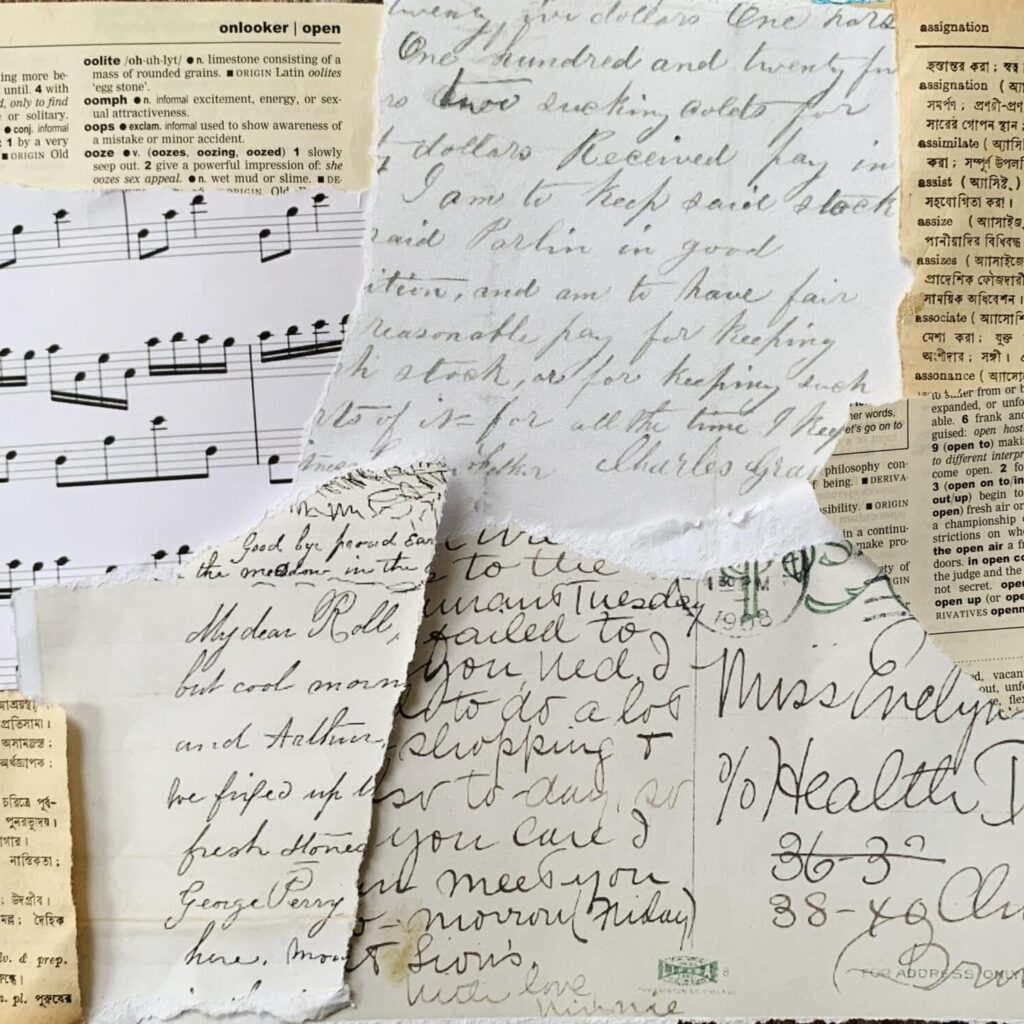 onlooker | open
ing more be-
until. 4 with
d, only to find
or solitary.
● conj. informal
: 1 by a very
■ ORIGIN Old
oolite /oh-uh-lyt/ ● n. limestone consisting of a
mass of rounded grains. ■ ORIGIN Latin oolites
'egg stone'.
oomph ● n. informal excitement, energy, or sex-
ual attractiveness.
oops ● exclam. informal used to show awareness of
a mistake or minor accident.
ooze ● v. (oozes, oozing, oozed) 1 slowly
seep out. 2 give a powerful impression of: she
oozes sex appeal. ● n. wet mud or slime. ■ DE-
ORIGIN Old
twenty five dollars One hors
One hundred and twenty fiv
two sucking colts for
dollars Received pay in
I am to keep said stock
said Parlin in good
ition, and am to have fair
reasonable pay for keeping
h stock, or for keeping such
rts of it for all the time I keep
Charles Gra
assignation
হস্তান্তর করা ; স্বত্ব
assignation ( অ্যা
সমর্পণ ; প্রণয়ী-প্র
সারের গোপন স্থান
assimilate ( অ্যাসি
করা ; সম্পূর্ণ উপল
assist ( অ্যাসিস্ট্ )
সহযোগিতা করা।
assize ( অ্যাসাইজ
পানীয়াদির বিধিবদ্ধ
assizes ( অ্যাসাইজে
প্রাদেশিক ফৌজদারী
সাময়িক অধিবেশন।
associate ( অ্যাসোশি
মেশা করা ; যুক্ত
অংশীদার ; সঙ্গী।
assonance ( অ্যাসো
to suffer from or b
expanded, or unfo
able. 6 frank and
guised: open host
9 (open to) makin
to different interpr
come open. 2 fo
3 (open on to/in
out/up) begin to
open) fresh air or
a championship o
strictions on wh
the open air a fr
doors. in open co
the judge and the
not secret. open
open up (or ope
RIVATIVES openn
her words,
et's go on to
philosophy con-
f being. ■ DERIVA-
sibility. ■ ORIGIN
in a continu-
make pro-
ety of
GIN
ed, vacan
out, unf
flex
Good bye proud Ear
the meadow in the
My dear Roll,
but cool morn
and Arthur,
we fixed up
fresh stones
George Perry
here.
to the
Tuesday
failed to
you, Ned. I
to do a lot
shopping &
so to-day, so
you care I
meet you
morrow (Friday)
with love
Minnie
30 PM
1908
Miss Evelyn
% Health D
36-32
38-40
FOR ADDRESS ONLY
8
আশ্রয়স্থ।
প্রতিসাম্য।
অসামঞ্জস্ত ;
অর্থজ্ঞাপক :
চরিত্রে পূর্ব-
পুনরভ্যুদয়।
গার।
নাস্তিকতা ;
উদগ্রীব।
মল্ল ; দৈহিক
v. & prep.
pl. পুরুষের